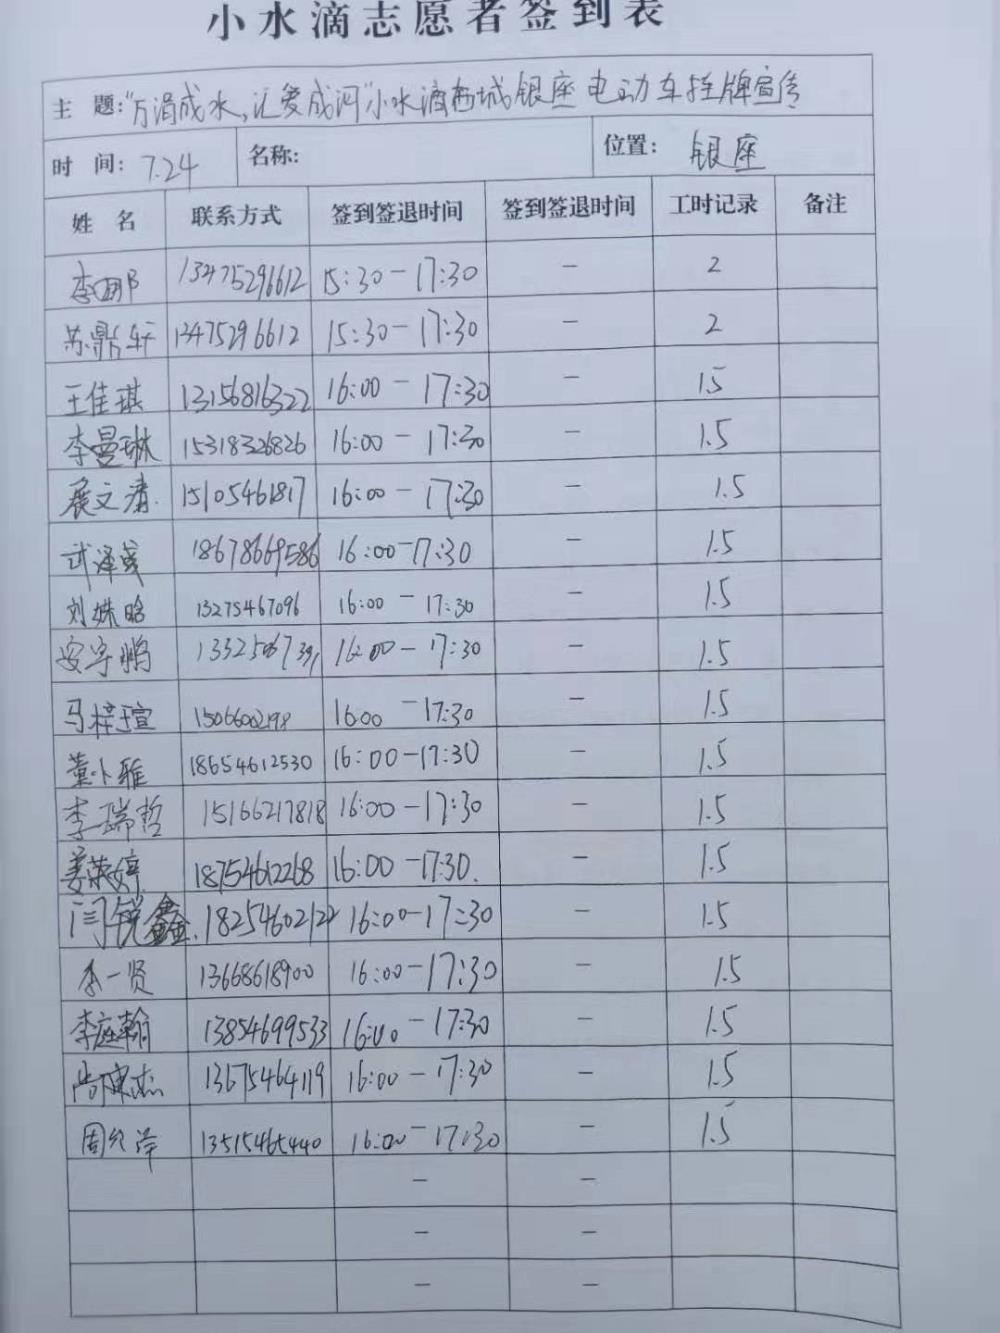 小水滴志愿者签到表
主 题: "万涓成水,汇爱成河"小水滴西城银座电动车挂牌宣传
时 间: 7.24 名称: 位置: 银座
姓 名 联系方式 签到签退时间 签到签退时间 工时记录 备注
李娜 13475296612 15:30-17:30 - 2
苏鼎轩 13475296612 15:30-17:30 - 2
王佳琪 13156816322 16:00-17:30 - 15
李曼琳 15318326826 16:00-17:30 - 1.5
展文清. 15105461817 16:00-17:30 - 1.5
武泽 18678669586 16:00-17:30 - 1.5
刘姝晗 13275467096 16:00-17:30 - 1.5
安宇鹏 16:00-17:30 - 1.5
马梓瑄 15066002198 1600-17:30 - 1.5
董卜雅 18654612530 16:00-17:30 - 1.5
李瑞哲 15166217818 16:00-17:30 - 1.5
姜荣婷 18754612268 16:00-17:30. - 1.5
闫锐鑫. 18254602122 16:00-17:30 - 1.5
李一贤 13668618900 16:00-17:30 - 1.5
李庭翰 13854699533 16:00-17:30 - 1.5
尚 杰 13675464119 16:00-17:30 - 1.5
周 泽 13515465440 16:00-17:30 - 1.5
- -
- -
- -